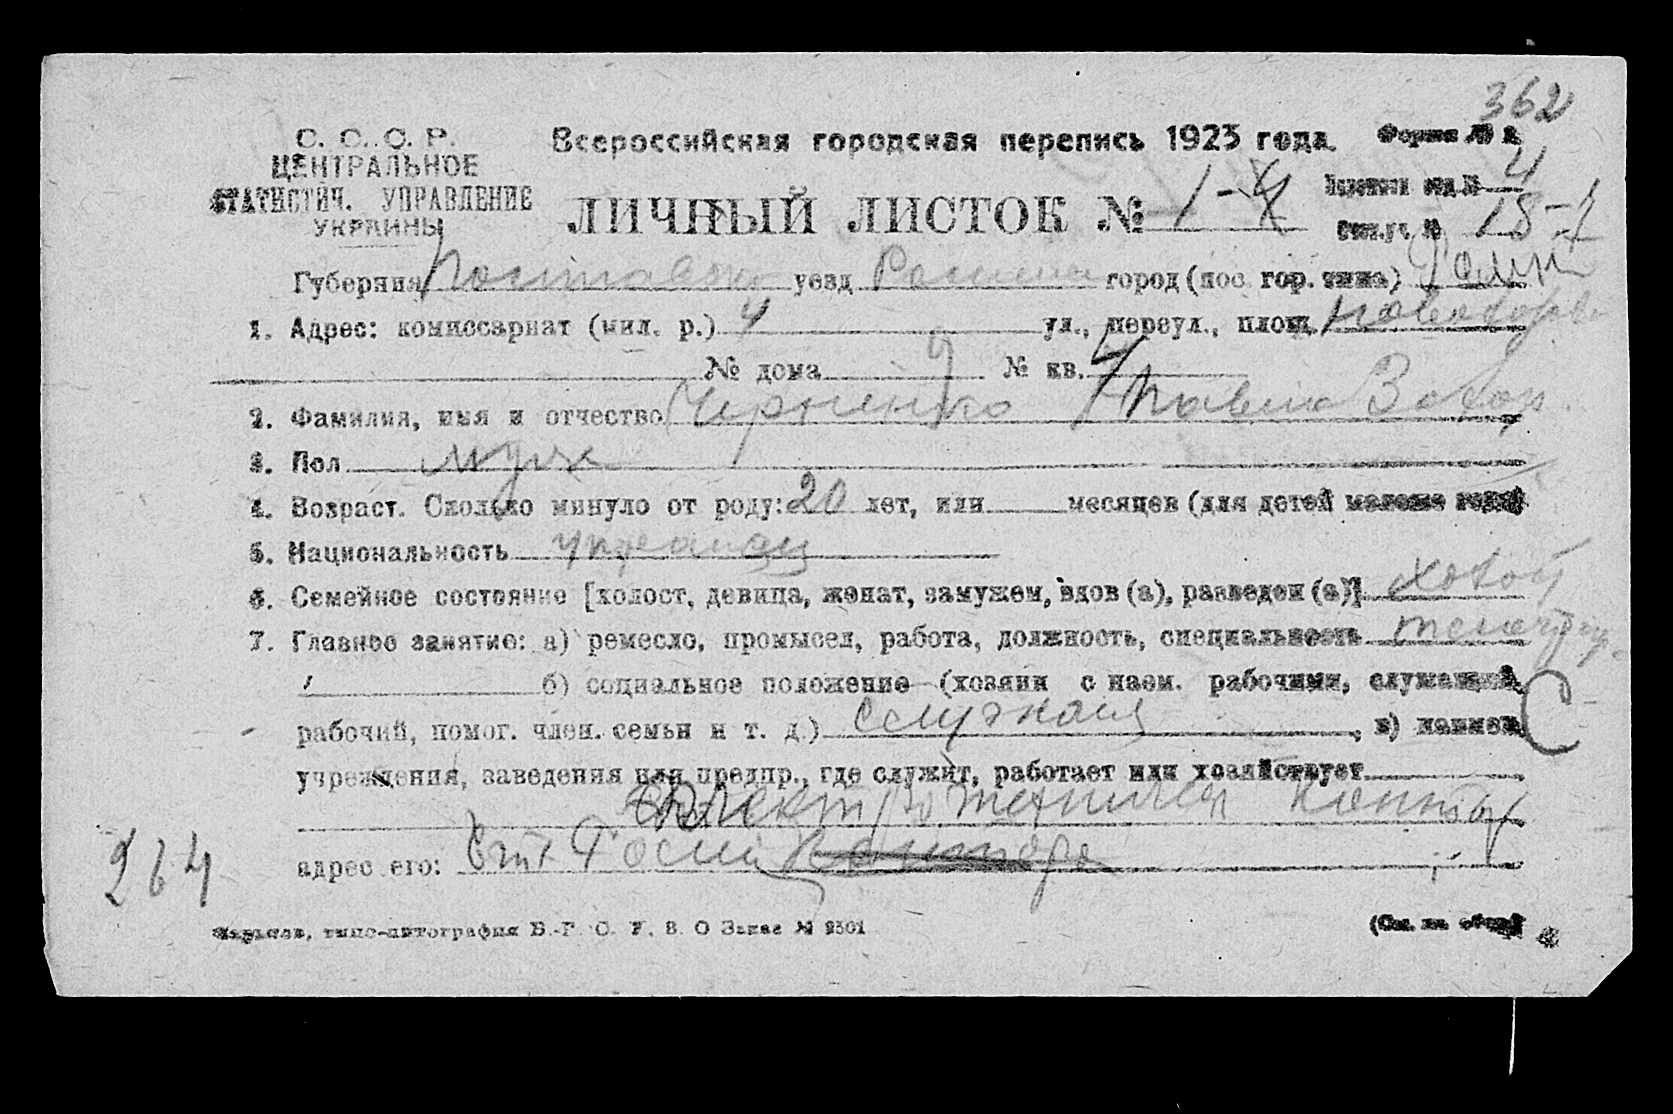 362
С. С. С. Р.
ЦЕНТРАЛЬНОЕ
СТАТИСТИЧ. УПРАВЛЕНИЕ
УКРАИНЫ
Всероссийская городская перепись 1923 года.
Форма №
ЛИЧНЫЙ ЛИСТОК № 1-4
отд. № 4
№ 18-1
Губерния Полтавско уезд Ромен город (пос. гор. типа) Ромн
1. Адрес: комиссариат (мил. р.) 4 ул., переул., площ.
№ дома 9 № кв. 4
2. Фамилия, имя и отчество Черненко Павло
3. Пол муж
4. Возраст. Сколько минуло от роду: 20 лет, или месяцев (для детей моложе года)
5. Национальность украинец
6. Семейное состояние [холост, девица, женат, замужем, вдов (а), разведен (а)] холост
7. Главное занятие: а) ремесло, промысел, работа, должность, специальность
б) социальное положение (хозяин с наем. рабочими, служащий,
рабочий, помог. член. семьи и т. д.) служащ , в) наимен. С
учреждения, заведения или предпр., где служит, работает или хозяйствует
адрес его:
264
Харьков, типо-литография Заказ № 2301
(См. на обор.)